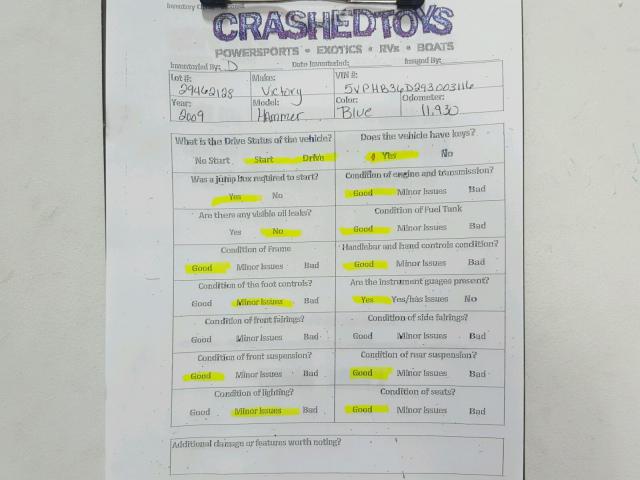 CRASHEDTOYS
POWERSPORTS • EXOTICS • RVs • BOATS
Inventoried By: D Date Inventoried: Imaged By:
Lot #: 29462128 Make: Victory VIN #: 5VPHB36D293003116
Year: 2009 Model: Hammer Color: Blue Odometer: 11,930
What is the Drive Status of the vehicle? Does the vehicle have keys?
No Start Start Drive Yes No
Was a jump box required to start? Condition of engine and transmission?
Yes No Good Minor Issues Bad
Are there any visible oil leaks? Condition of Fuel Tank
Yes No Good Minor Issues Bad
Condition of Frame Handlebar and hand controls condition?
Good Minor Issues Bad Good Minor Issues Bad
Condition of the foot controls? Are the instrument guages present?
Good Minor Issues Bad Yes Yes/has Issues No
Condition of front fairings? Condition of side fairings?
Good Minor Issues Bad Good Minor Issues Bad
Condition of front suspension? Condition of rear suspension?
Good Minor Issues Bad Good Minor Issues Bad
Condition of lighting? Condition of seats?
Good Minor Issues Bad Good Minor Issues Bad
Additional damage or features worth noting?